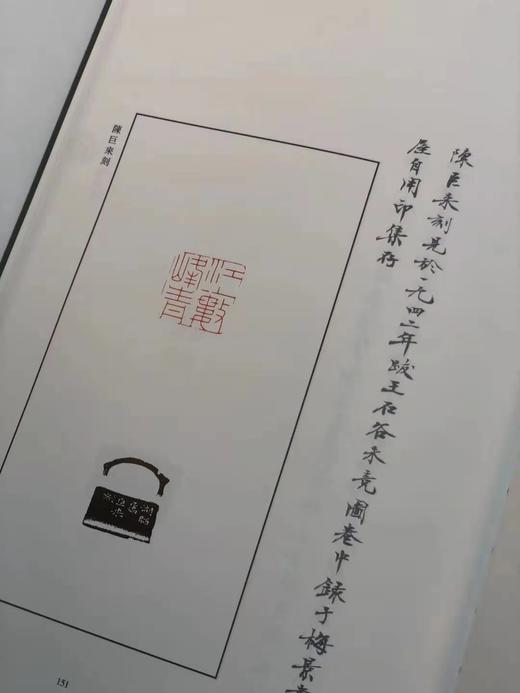 陳巨來刻見於一九四二年跋王石谷未竟圖卷中錄于梅景書
屋自用印集存
陳巨來刻
江上數
峰青
151